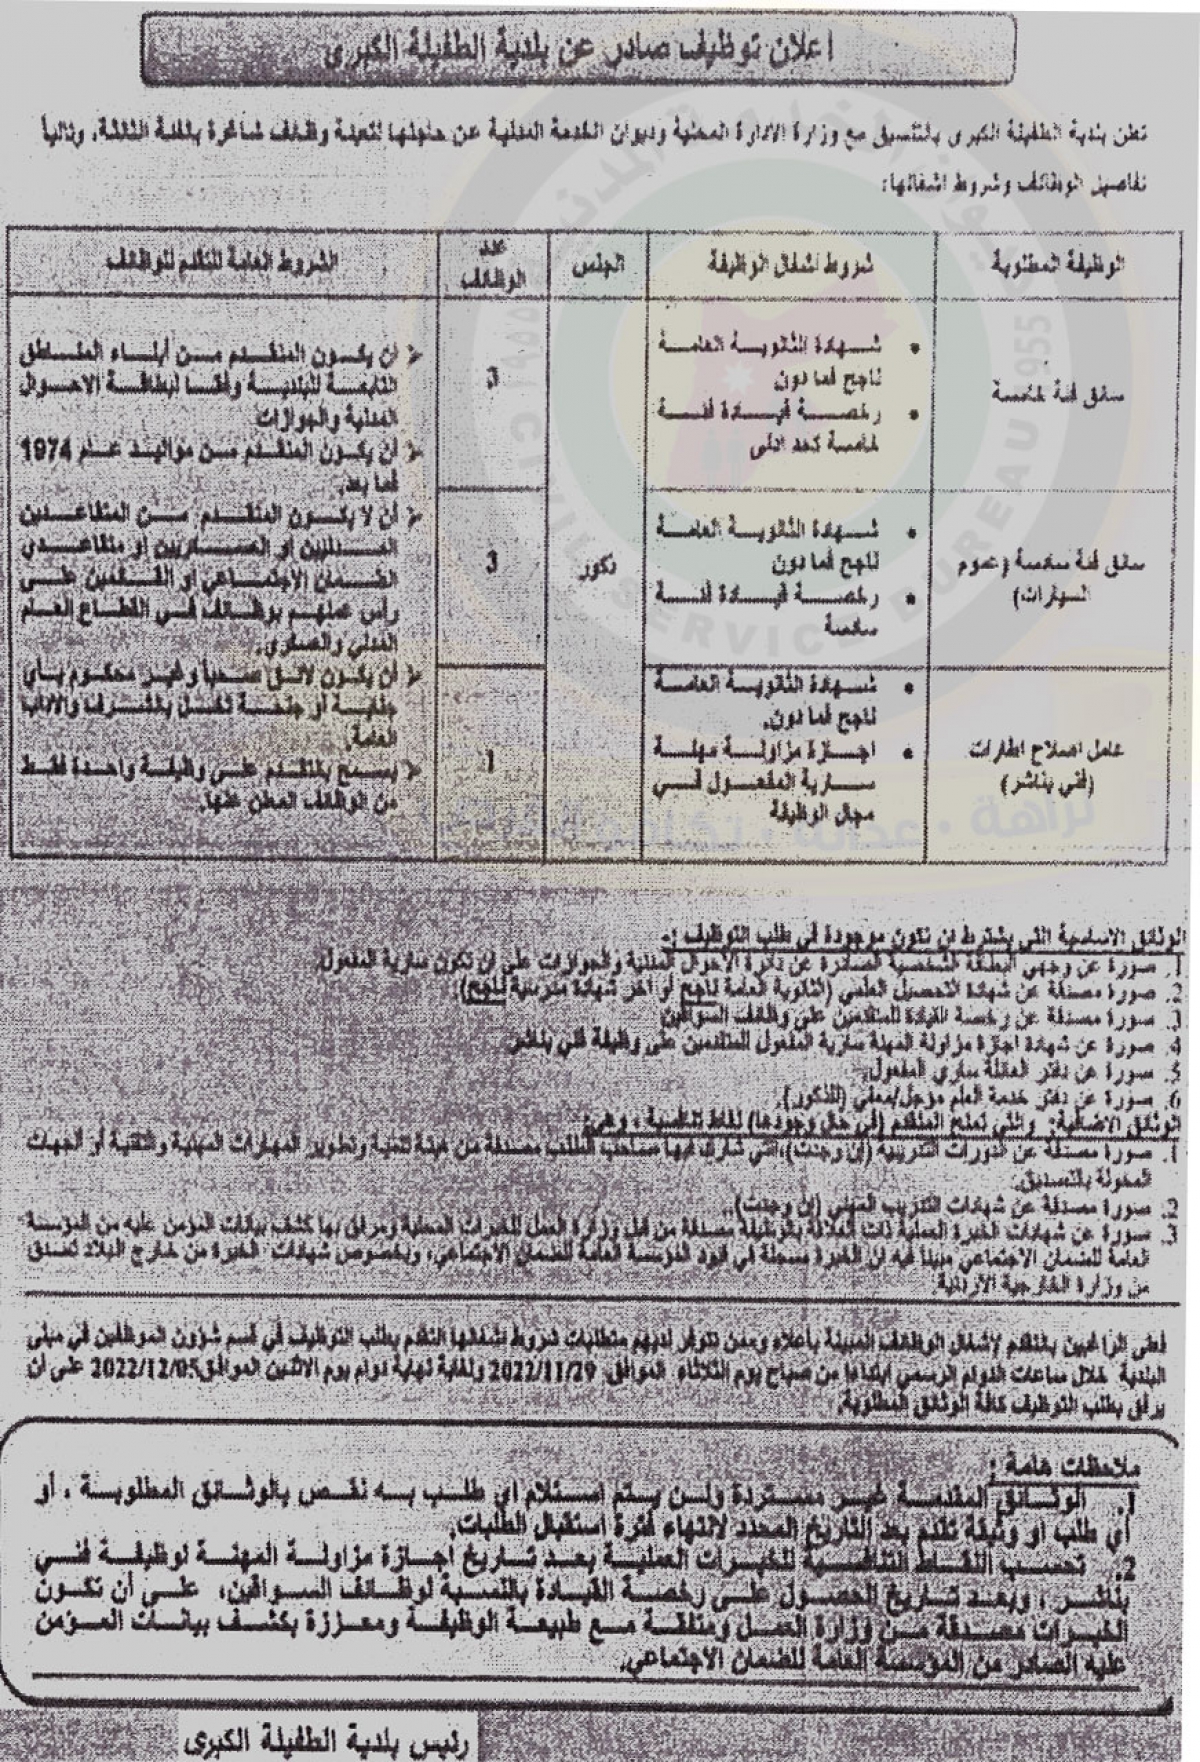 اعلان توظيف صادر عن بلدية الطفيلة الكبرى
تعلن بلدية الطفيلة الكبرى بالتنسيق مع وزارة الادارة المحلية وديوان الخدمة المدنية عن حاجتها لتعبئة وظائف شاغرة بالفئة الثالثة، وتالياً
تفاصيل الوظائف وشروط اشغالها:
الوظيفة المطلوبة
شروط اشغال الوظيفة
الجنس
عدد
الوظائف
الشروط العامة للتقدم للوظائف
سائق فئة خامسة
• شهادة الثانوية العامة
ناجح فما دون
• رخصة قيادة فئة
خامسة كحد ادنى
3
سائق فئة سادسة (عموم
السيارات)
• شهادة الثانوية العامة
ناجح فما دون
• رخصة قيادة فئة
سادسة
ذكور
3
عامل اصلاح اطارات
(فني بناشر)
• شهادة الثانوية العامة
ناجح فما دون.
• اجازة مزاولة مهنة
سارية المفعول في
مجال الوظيفة
1
أن يكون المتقدم من أبناء المناطق
التابعة للبلدية وفقا لبطاقة الاحوال
المدنية والجوازات
أن يكون المتقدم من مواليد عام 1974
فما بعد.
أن لا يكون المتقدم من المتقاعدين
المدنيين او العسكريين او متقاعدي
الضمان الإجتماعي او القائمين على
رأس عملهم بوظائف في القطاع العام
المدني والعسكري.
أن يكون لائق صحياً وغير محكوم بأي
جناية او جنحة تخل بالشرف والاداب
العامة.
يسمح بالتقدم على وظيفة واحدة فقط
من الوظائف المعلن عنها.
الوثائق الاساسية التي يشترط ان تكون موجودة في طلب التوظيف :-
1. صورة عن وجهي البطاقة الشخصية الصادرة عن دائرة الاحوال المدنية والجوازات على ان تكون سارية المفعول.
2. صورة مصدقة عن شهادة التحصيل العلمي (الثانوية العامة ناجح أو اخر شهادة مدرسية ناجح).
3. صورة مصدقة عن رخصة القيادة للمتقدمين على وظائف السواقين
4. صورة عن شهادة اجازة مزاولة المهنة سارية المفعول للمتقدمين على وظيفة فني بناشر.
5. صورة عن دفتر العائلة ساري المفعول.
6. صورة عن دفتر خدمة العلم مؤجل/معفي (للذكور).
الوثائق الاضافية: والتي تمنح المتقدم (في حال وجودها) نقاط تنافسية ، وهي:
1. صورة مصدقة عن الدورات التدريبية (إن وجدت)، التي شارك فيها صاحب الطلب مصدقة من هيئة تنمية وتطوير المهارات المهنية والتقنية أو الجهات
المخولة بالتصديق.
2. صورة مصدقة عن شهادات التدريب المهني (إن وجدت).
3. صورة عن شهادات الخبرة العملية ذات العلاقة بالوظيفة مصدقة من قبل وزارة العمل للخبرات المحلية ومرفق بها كشف بيانات المؤمن عليه من المؤسسة
العامة للضمان الاجتماعي مبينا فيه ان الخبرة مسجلة في قيود المؤسسة العامة للضمان الاجتماعي، وبخصوص شهادات الخبرة من خارج البلاد تصدق
من وزارة الخارجية الاردنية.
فعلى الراغبين بالتقدم لإشغال الوظائف المبينة بأعلاه وممن تتوفر لديهم متطلبات شروط اشغالها التقدم بطلب التوظيف في قسم شؤون الموظفين في مبنى
البلدية خلال ساعات الدوام الرسمي ابتداءا من صباح يوم الثلاثاء الموافق 2022/11/29 ولغاية نهاية دوام يوم الاثنين الموافق 2022/12/05 على ان
يرفق بطلب التوظيف كافة الوثائق المطلوبة.
ملاحظات هامة :
1. الوثائق المقدمة غير مستردة ولن يتم استلام اي طلب به نقص بالوثائق المطلوبة ، أو
أي طلب او وثيقة تقدم بعد التاريخ المحدد لانتهاء فترة استقبال الطلبات.
2. تحسب النقاط التنافسية للخبرات العملية بعد تاريخ اجازة مزاولة المهنة لوظيفة فني
بناشر ، وبعد تاريخ الحصول على رخصة القيادة بالنسبة لوظائف السواقين، على أن تكون
الخبرات مصدقة من وزارة العمل ومتفقة مع طبيعة الوظيفة ومعززة بكشف بيانات المؤمن
عليه الصادر من المؤسسة العامة للضمان الاجتماعي.
رئيس بلدية الطفيلة الكبرى
CIVIL SERVICE BUREAU 1955
نزاهة . عدالة .